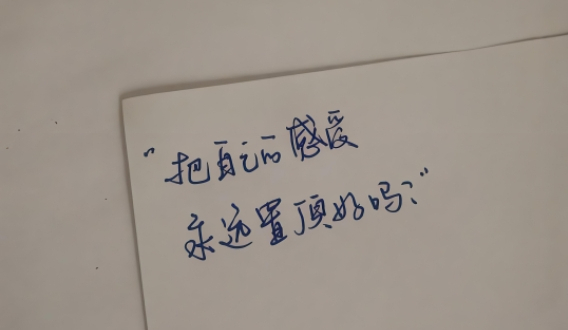 "把自己的感受
永远置顶好吗?"